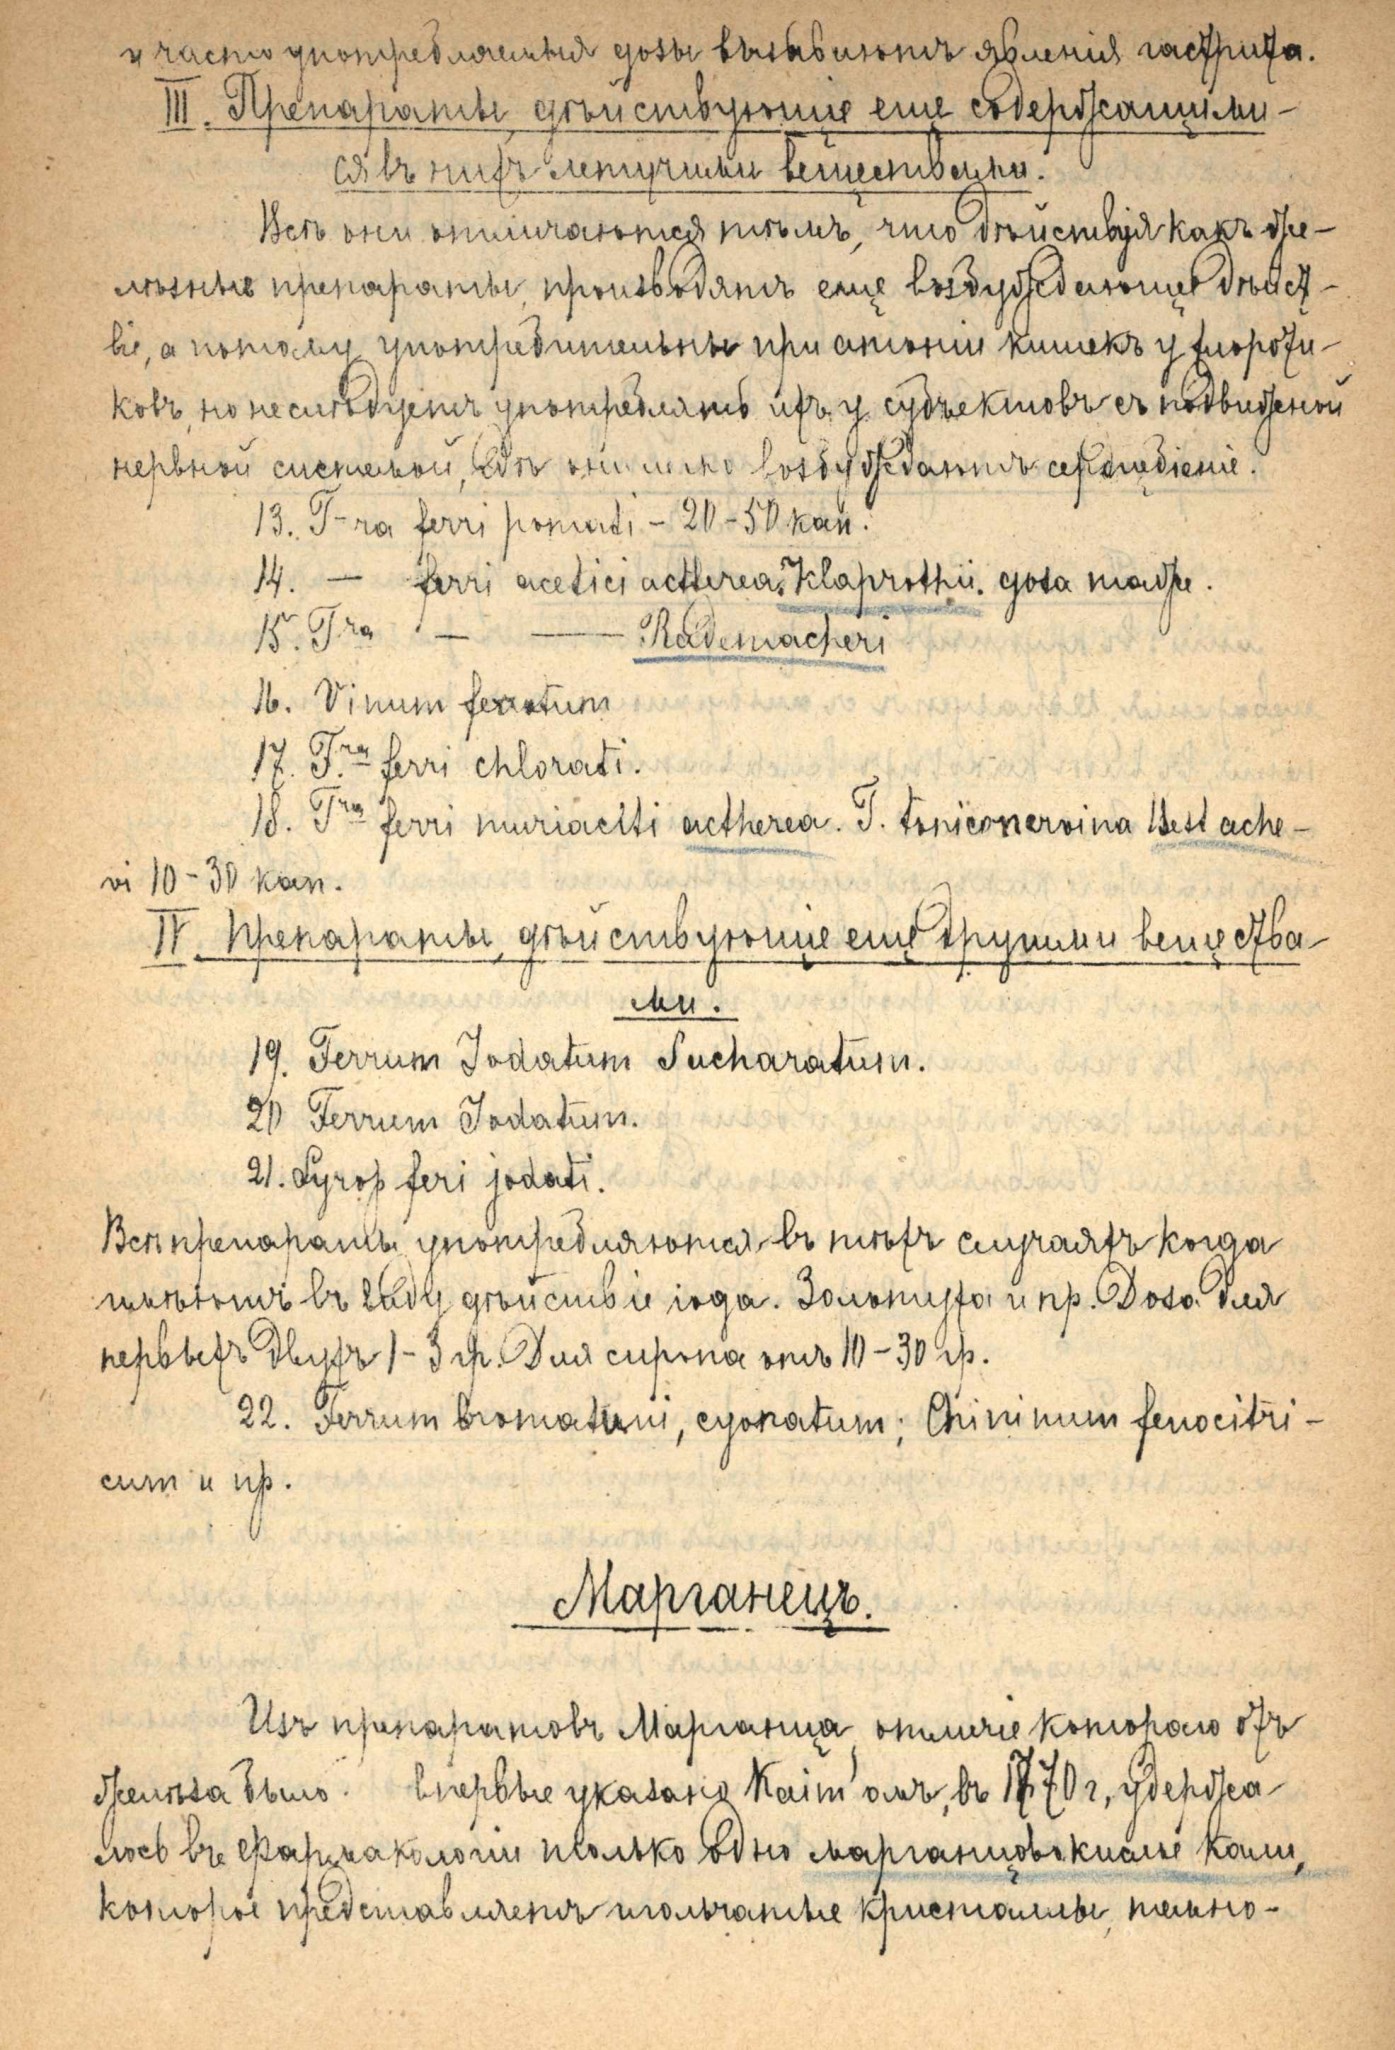 и часто употребляемыя дозы вызываютъ явленія гастрита.
III. Препараты, дѣйствующіе еще содержащими-
ся въ нихъ летучими веществами.
Всѣ они отличаются тѣмъ, что дѣйствуя какъ же-
лѣзные препараты, производятъ еще возбуждающее дѣйст-
віе, а потому употребительны при атоніи кишекъ у хлороти-
ковъ, но не слѣдуетъ употреблять ихъ у субъектовъ съ подвижной
нервной системой, гдѣ они легко возбуждаютъ сердцебіеніе.
13. T-ra ferri pomati - 20-50 кап.
14. — ferri acetici aetherea, Klaprothii. доза таже.
15. Tra — — Rademacheri
16. Vinum ferratum
17. Tra ferri chlorati.
18. Tra ferri muriaciti aetherea. T. tonico nervina Bestache-
vi 10-30 кап.
IV. Препараты, дѣйствующіе еще другими вещества-
ми.
19. Ferrum Jodatum Sucharatum.
20 Ferrum Jodatum.
21. Syrop feri jodati.
Всѣ препараты употребляются въ тѣхъ случаяхъ когда
имѣютъ въ виду дѣйствіе іода. Золотуха и пр. Доза для
первыхъ двухъ 1-3 гр. Для сиропа отъ 10-30 гр.
22. Ferrum bromatum, cyonatum; Chininum ferrocitri-
cum и пр.
Марганецъ.
Изъ препаратовъ Марганца, отличіе котораго отъ
желѣза было впервые указано Kaim'омъ, въ 1770 г, удержа-
лось въ фармакологіи только одно марганцовокислое кали,
которое представляетъ игольчатые кристаллы, темно-